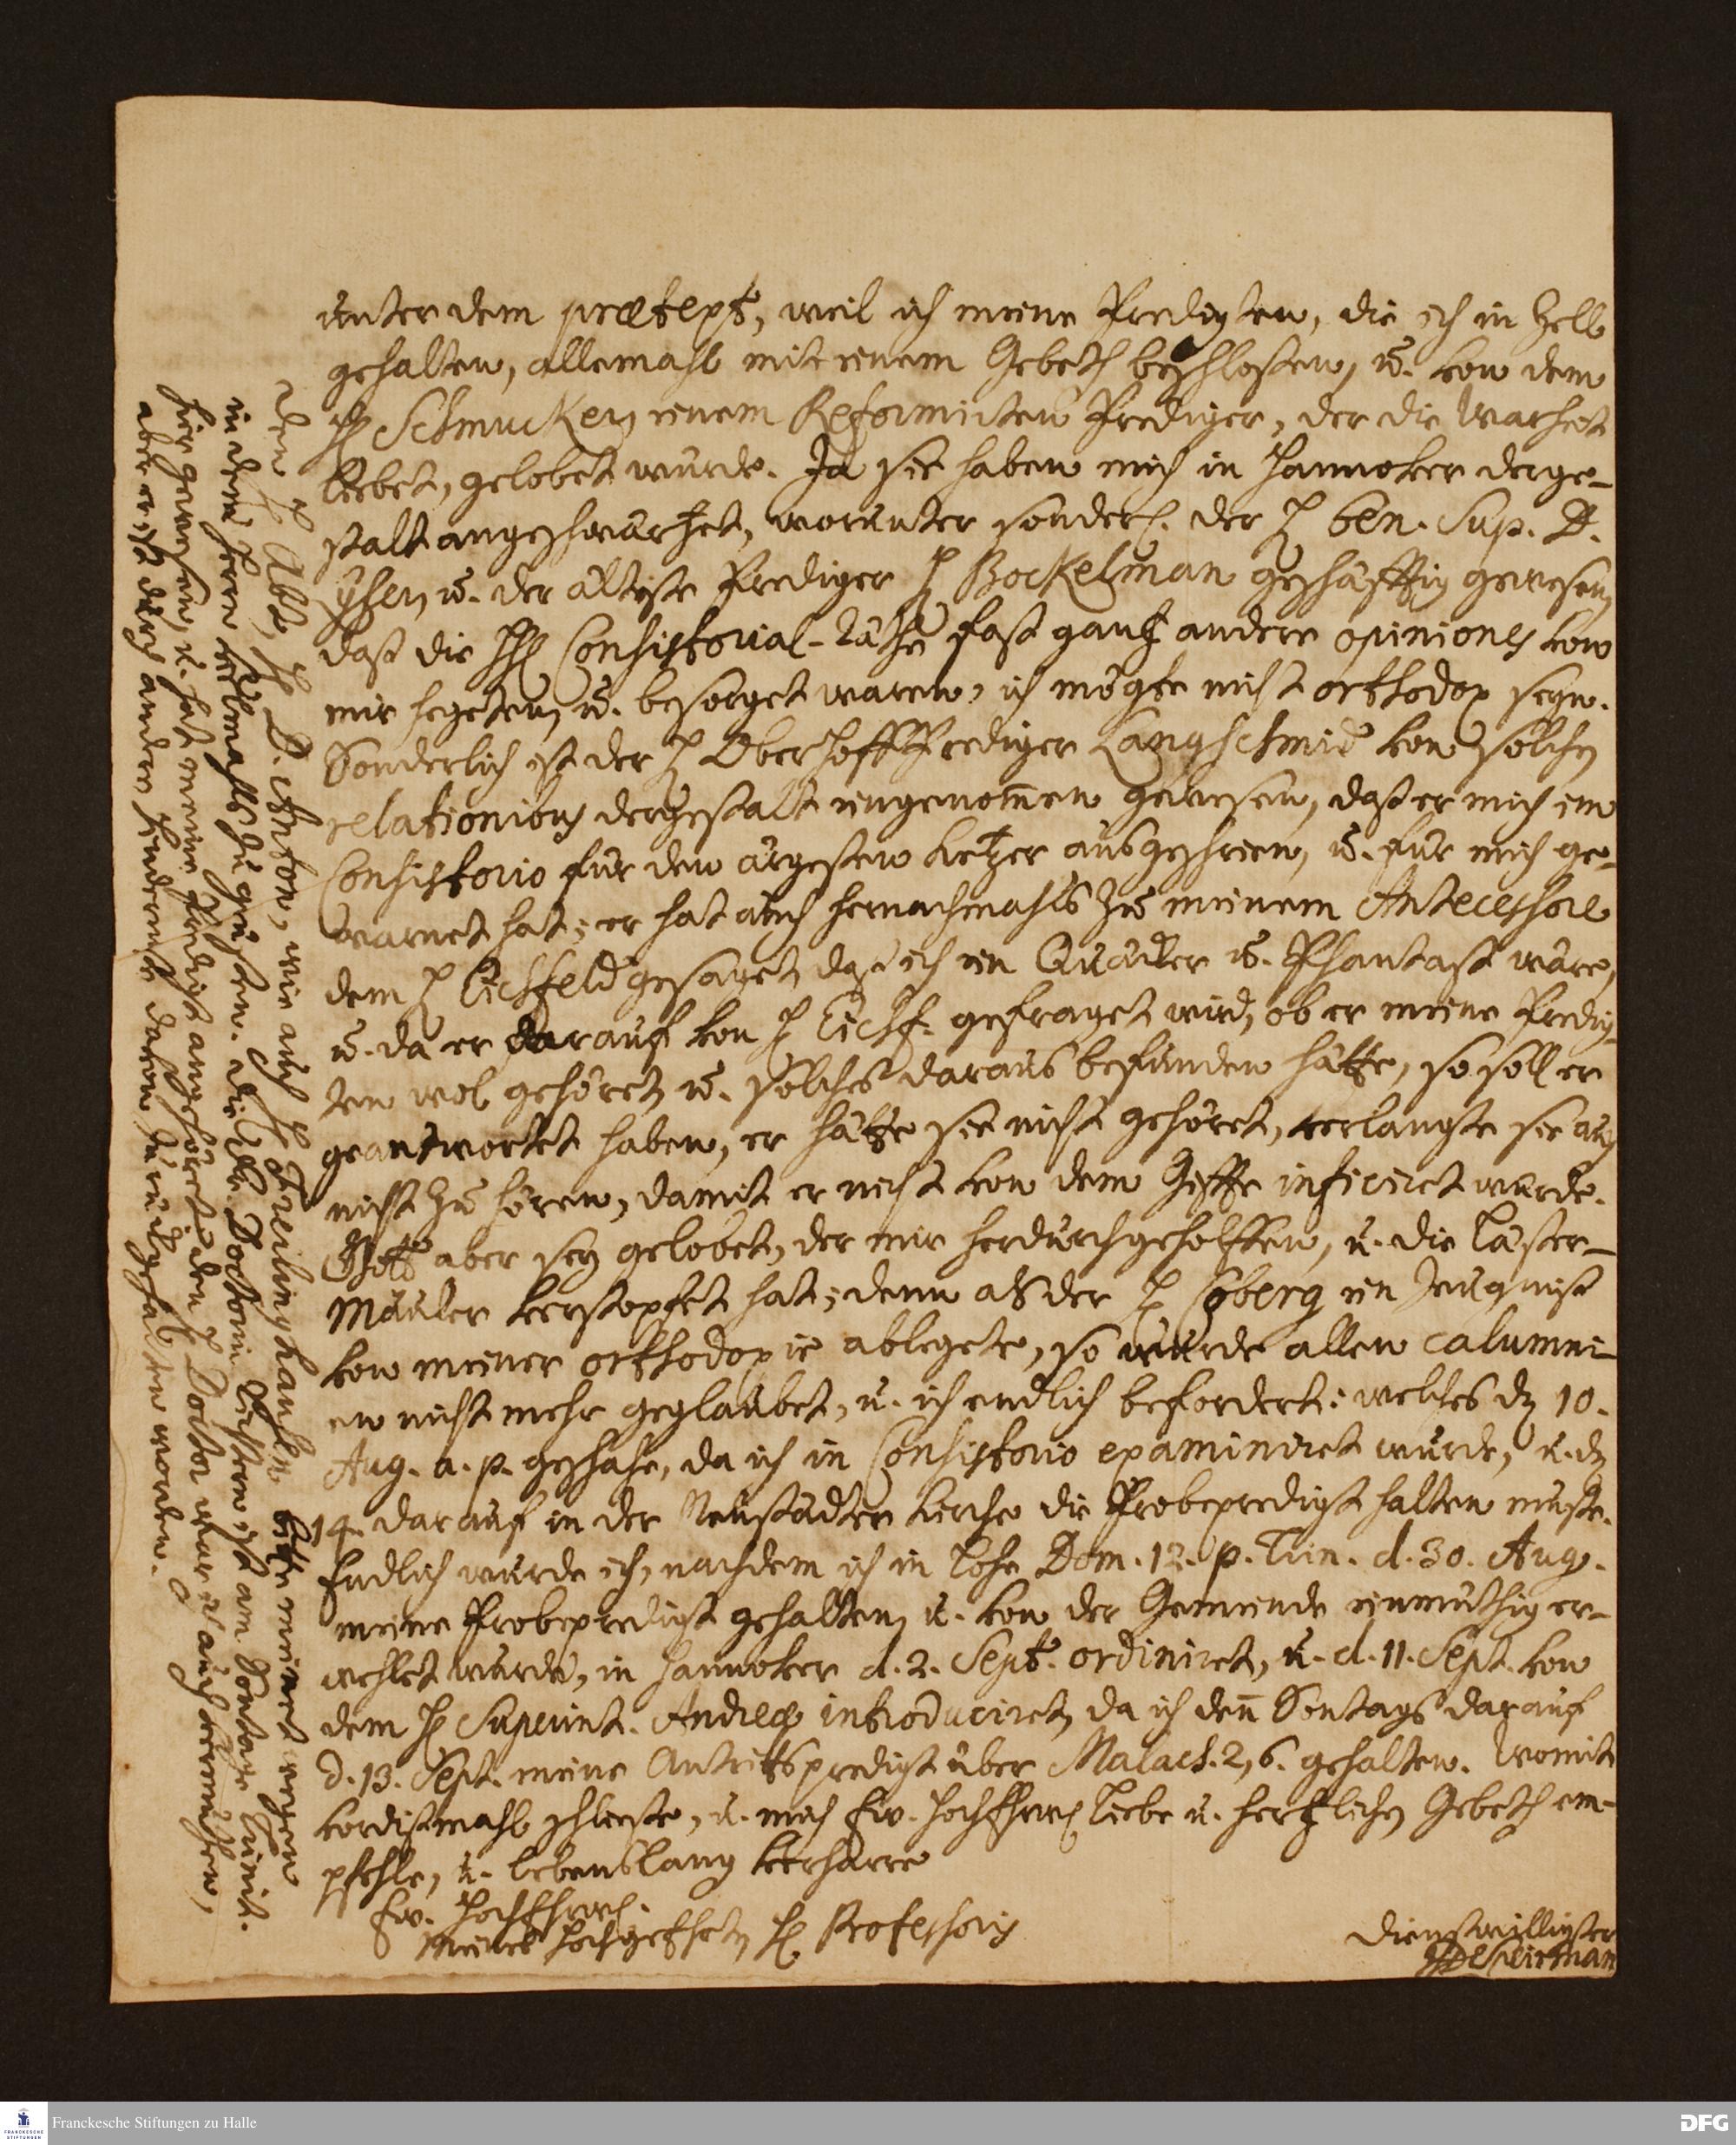 unter dem prætext, weil ich meine Predigten, die ich in Zell
gehalten, allemahl mit einem Gebeth beschlossen, u. von dem
H Schmucken einem Reformirten Prediger, der die Warheit
liebet, gelobet wurde. Ja sie haben mich in Hannover derge-
stalt angeschwärtzet, worunter sonderl. der H Gen. Sup. D.
u. der älteste Prediger H Bockelman geschäfftig gewesen,
daß die HH Consistorial-Räthe fast gantz andere opiniones von
mir hegeten, u. besorget waren, ich mögte nicht orthodox seyn.
Sonderlich ist der H OberHoffPrediger Langschmid von solchen
relationibus dergestalt eingenommen gewesen, daß er mich im
Consistorio für den ärgesten Ketzer ausgeschrien, u. für mich ge-
warnet hat; er hat auch hernachmahls zu meinem Antecessore
dem H Eichfeld gesaget, daß ich ein Quäcker u. Phantast wäre,
u. da er darauf von H Eichf. gefraget wird, ob er meine Predig-
ten wol gehöret, u. solches daraus befunden hätte, so soll er
geantwortet haben, er hätte sie nicht gehöret, verlangte sie auch
nicht zu hören, damit er nicht von dem Giffte inficiret würde.
Gott aber sey gelobet, der mir herdurchgeholffen, u. die Läster-
Mäuler verstopfet hat; denn als der H Coberg ein Zeugniß
von meiner orthodoxie ablegete, so wurde allen calumni-
en nicht mehr geglaubet, u. ich endlich befordert: welches d. 10.
Aug. a. p. geschahe, da ich in Consistorio examiniret wurde, u. d.
14. darauf in der Neustädter Kirche die Probepredigt halten muste.
Endlich wurde ich, nachdem ich in Lohe Dom. 12. p. Trin. d. 30. Aug.
meine Probepredigt gehalten, u. von der Gemeinde einmüthig er-
wehlet wurde, in Hannover d. 2. Sept. ordiniret, u. d. 11. Sept. von
dem H Superint. Andreæ introduciret, da ich den Sontags darauf
d. 13. Sept. meine Antrittspredigt über Malach. 2, 6. gehalten. Womit
vordißmahl schliesse, u. mich Ew. HochEhrw Liebe u. hertzlichen Gebeth em-
pfehle, u. lebenslang verharre
Ew. HochEhrw.
meines Hochgeehrten H Professoris
dienstwilligster
den H Abt, H D. Anton, wie auch H Freylinghausen bitte meinet wegen
in dem Herrn vielmahls zu grüßen. die Fr. Doctorin ist am Sontage
hie gewesen, u. hat meine Predigt angehöret: den H Doctor war auch
aber er ist durch andere hindernisse davon zurückgehalten worden.
Franckesche Stiftungen zu Halle
FRANCKESCHE STIFTUNGEN
DFG